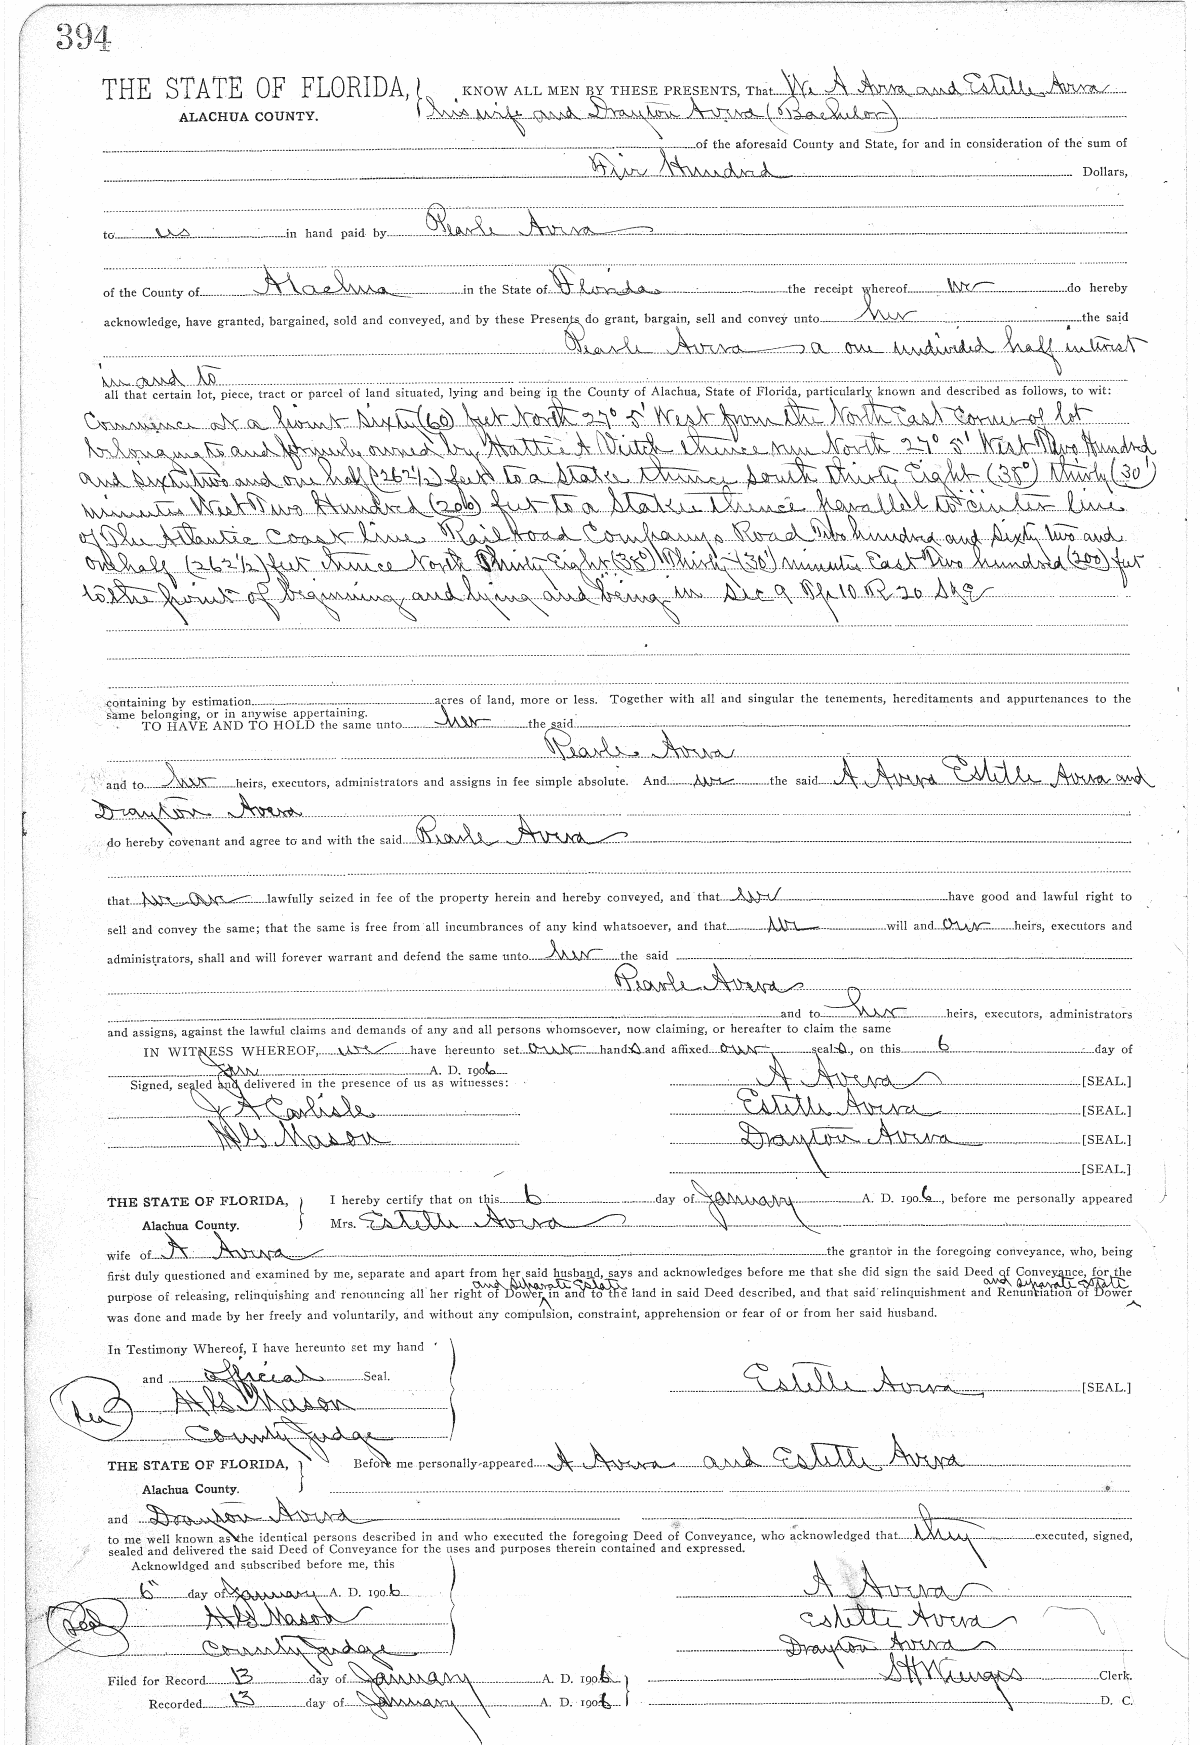 394
THE STATE OF FLORIDA, KNOW ALL MEN BY THESE PRESENTS, That We A Avera and Estelle Avera
ALACHUA COUNTY. his wife and Drayton Avera (Bachelor)
of the aforesaid County and State, for and in consideration of the sum of
Five Hundred Dollars,
to us in hand paid by Pearle Avera
of the County of Alachua in the State of Florida the receipt whereof we do hereby
acknowledge, have granted, bargained, sold and conveyed, and by these Presents do grant, bargain, sell and convey unto her the said
Pearle Avera a one undivided half interest
in and to
all that certain lot, piece, tract or parcel of land situated, lying and being in the County of Alachua, State of Florida, particularly known and described as follows, to wit:
Commence at a point sixty (60) feet North 27° 5' West from the North East Corner of lot
belonging to and formerly owned by Hattie A Veitch thence run North 27° 5' West Two Hundred
and sixty two and one half (262 1/2) feet to a Stake thence south thirty Eight (38°) thirty (30')
minutes West Two Hundred (200) feet to a Stake thence parallel to center line
of The Atlantic Coast line Railroad Companys Road Two hundred and Sixty two and
One half (262 1/2) feet thence North Thirty Eight (38°) Thirty (30') minutes East Two hundred (200) feet
to the point of beginning and lying and being in Sec 9 Tp 10 R 20 S&E
containing by estimation acres of land, more or less. Together with all and singular the tenements, hereditaments and appurtenances to the
same belonging, or in anywise appertaining.
TO HAVE AND TO HOLD the same unto her the said
Pearle Avera
and to her heirs, executors, administrators and assigns in fee simple absolute. And we the said A Avera Estelle Avera and
Drayton Avera
do hereby covenant and agree to and with the said Pearle Avera
that we are lawfully seized in fee of the property herein and hereby conveyed, and that we have good and lawful right to
sell and convey the same; that the same is free from all incumbrances of any kind whatsoever, and that we will and our heirs, executors and
administrators, shall and will forever warrant and defend the same unto her the said
Pearle Avera
and to her heirs, executors, administrators
and assigns, against the lawful claims and demands of any and all persons whomsoever, now claiming, or hereafter to claim the same
IN WITNESS WHEREOF, we have hereunto set our hands and affixed our seals, on this 6 day of
Jan A. D. 1906
Signed, sealed and delivered in the presence of us as witnesses: A Avera [SEAL.]
J A Carlisle Estelle Avera [SEAL.]
H G Mason Drayton Avera [SEAL.]
[SEAL.]
THE STATE OF FLORIDA, I hereby certify that on this 6 day of January A. D. 1906, before me personally appeared
Alachua County. Mrs. Estelle Avera
wife of A Avera the grantor in the foregoing conveyance, who, being
first duly questioned and examined by me, separate and apart from her said husband, says and acknowledges before me that she did sign the said Deed of Conveyance, for the
and separate Estate and separate estate
purpose of releasing, relinquishing and renouncing all her right of Dower in and to the land in said Deed described, and that said relinquishment and Renunciation of Dower
was done and made by her freely and voluntarily, and without any compulsion, constraint, apprehension or fear of or from her said husband.
In Testimony Whereof, I have hereunto set my hand
and official Seal. Estelle Avera [SEAL.]
Sea H G Mason
County Judge
THE STATE OF FLORIDA, Before me personally appeared A Avera and Estelle Avera
Alachua County.
and Drayton Avera
to me well known as the identical persons described in and who executed the foregoing Deed of Conveyance, who acknowledged that they executed, signed,
sealed and delivered the said Deed of Conveyance for the uses and purposes therein contained and expressed.
Acknowldged and subscribed before me, this
6" day of January A. D. 1906 A Avera
Seal H G Mason Estelle Avera
County Judge Drayton Avera
Filed for Record 13 day of January A. D. 1906 S H Wienges Clerk.
Recorded 13 day of January A. D. 1906 D. C.